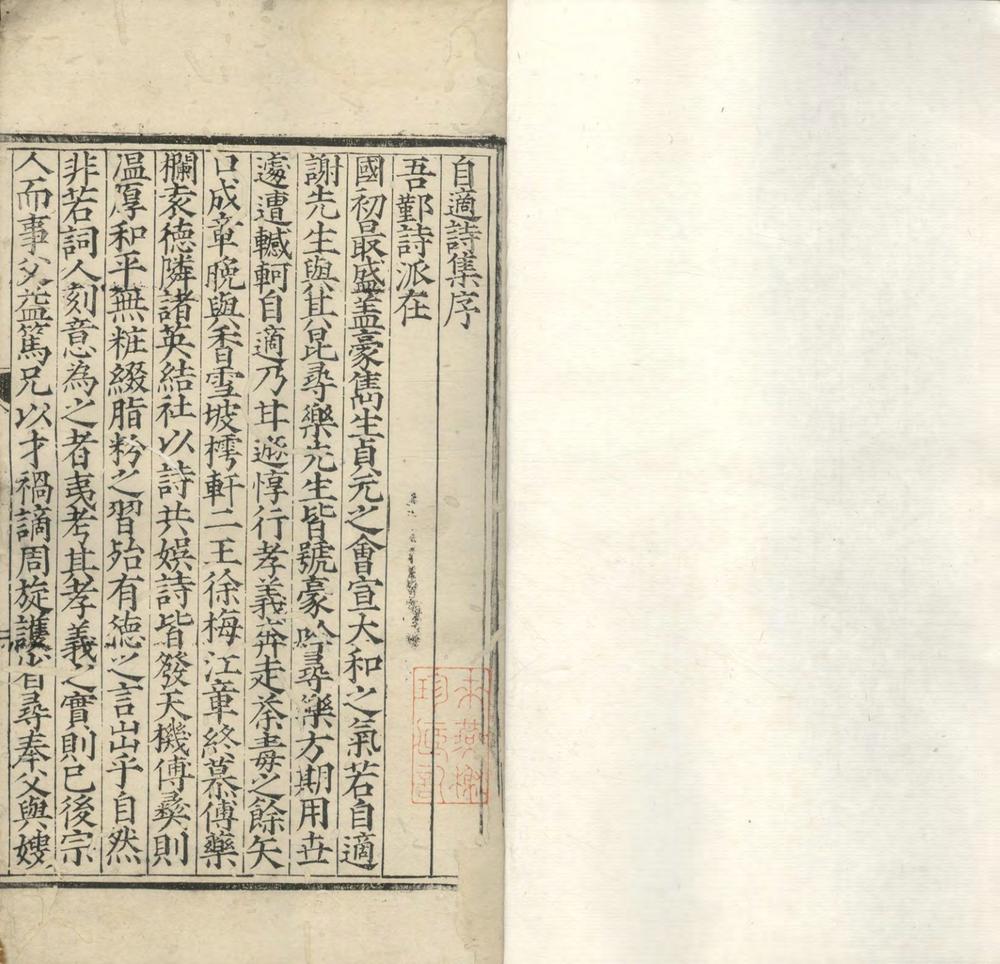 自適詩集序
吾鄞詩派在
國初最盛盖豪雋生貞元之會宣大和之氣若自適
謝先生與其昆尋樂先生皆號豪吟尋樂方期用世
遽遭轗軻自適乃甘遯惇行孝義奔走荼毒之餘矢
口成章晚與香雪坡樗軒二王徐梅江章終慕傅藥
欄袁德隣諸英結社以詩共娛詩皆發天機傅彞則
溫厚和平無粧綴脂粉之習殆有德之言出乎自然
非若詞人刻意為之者夷考其孝義之實則已後宗
人而事父益篤兄以才禍謫周旋護省尋奉父與嫂